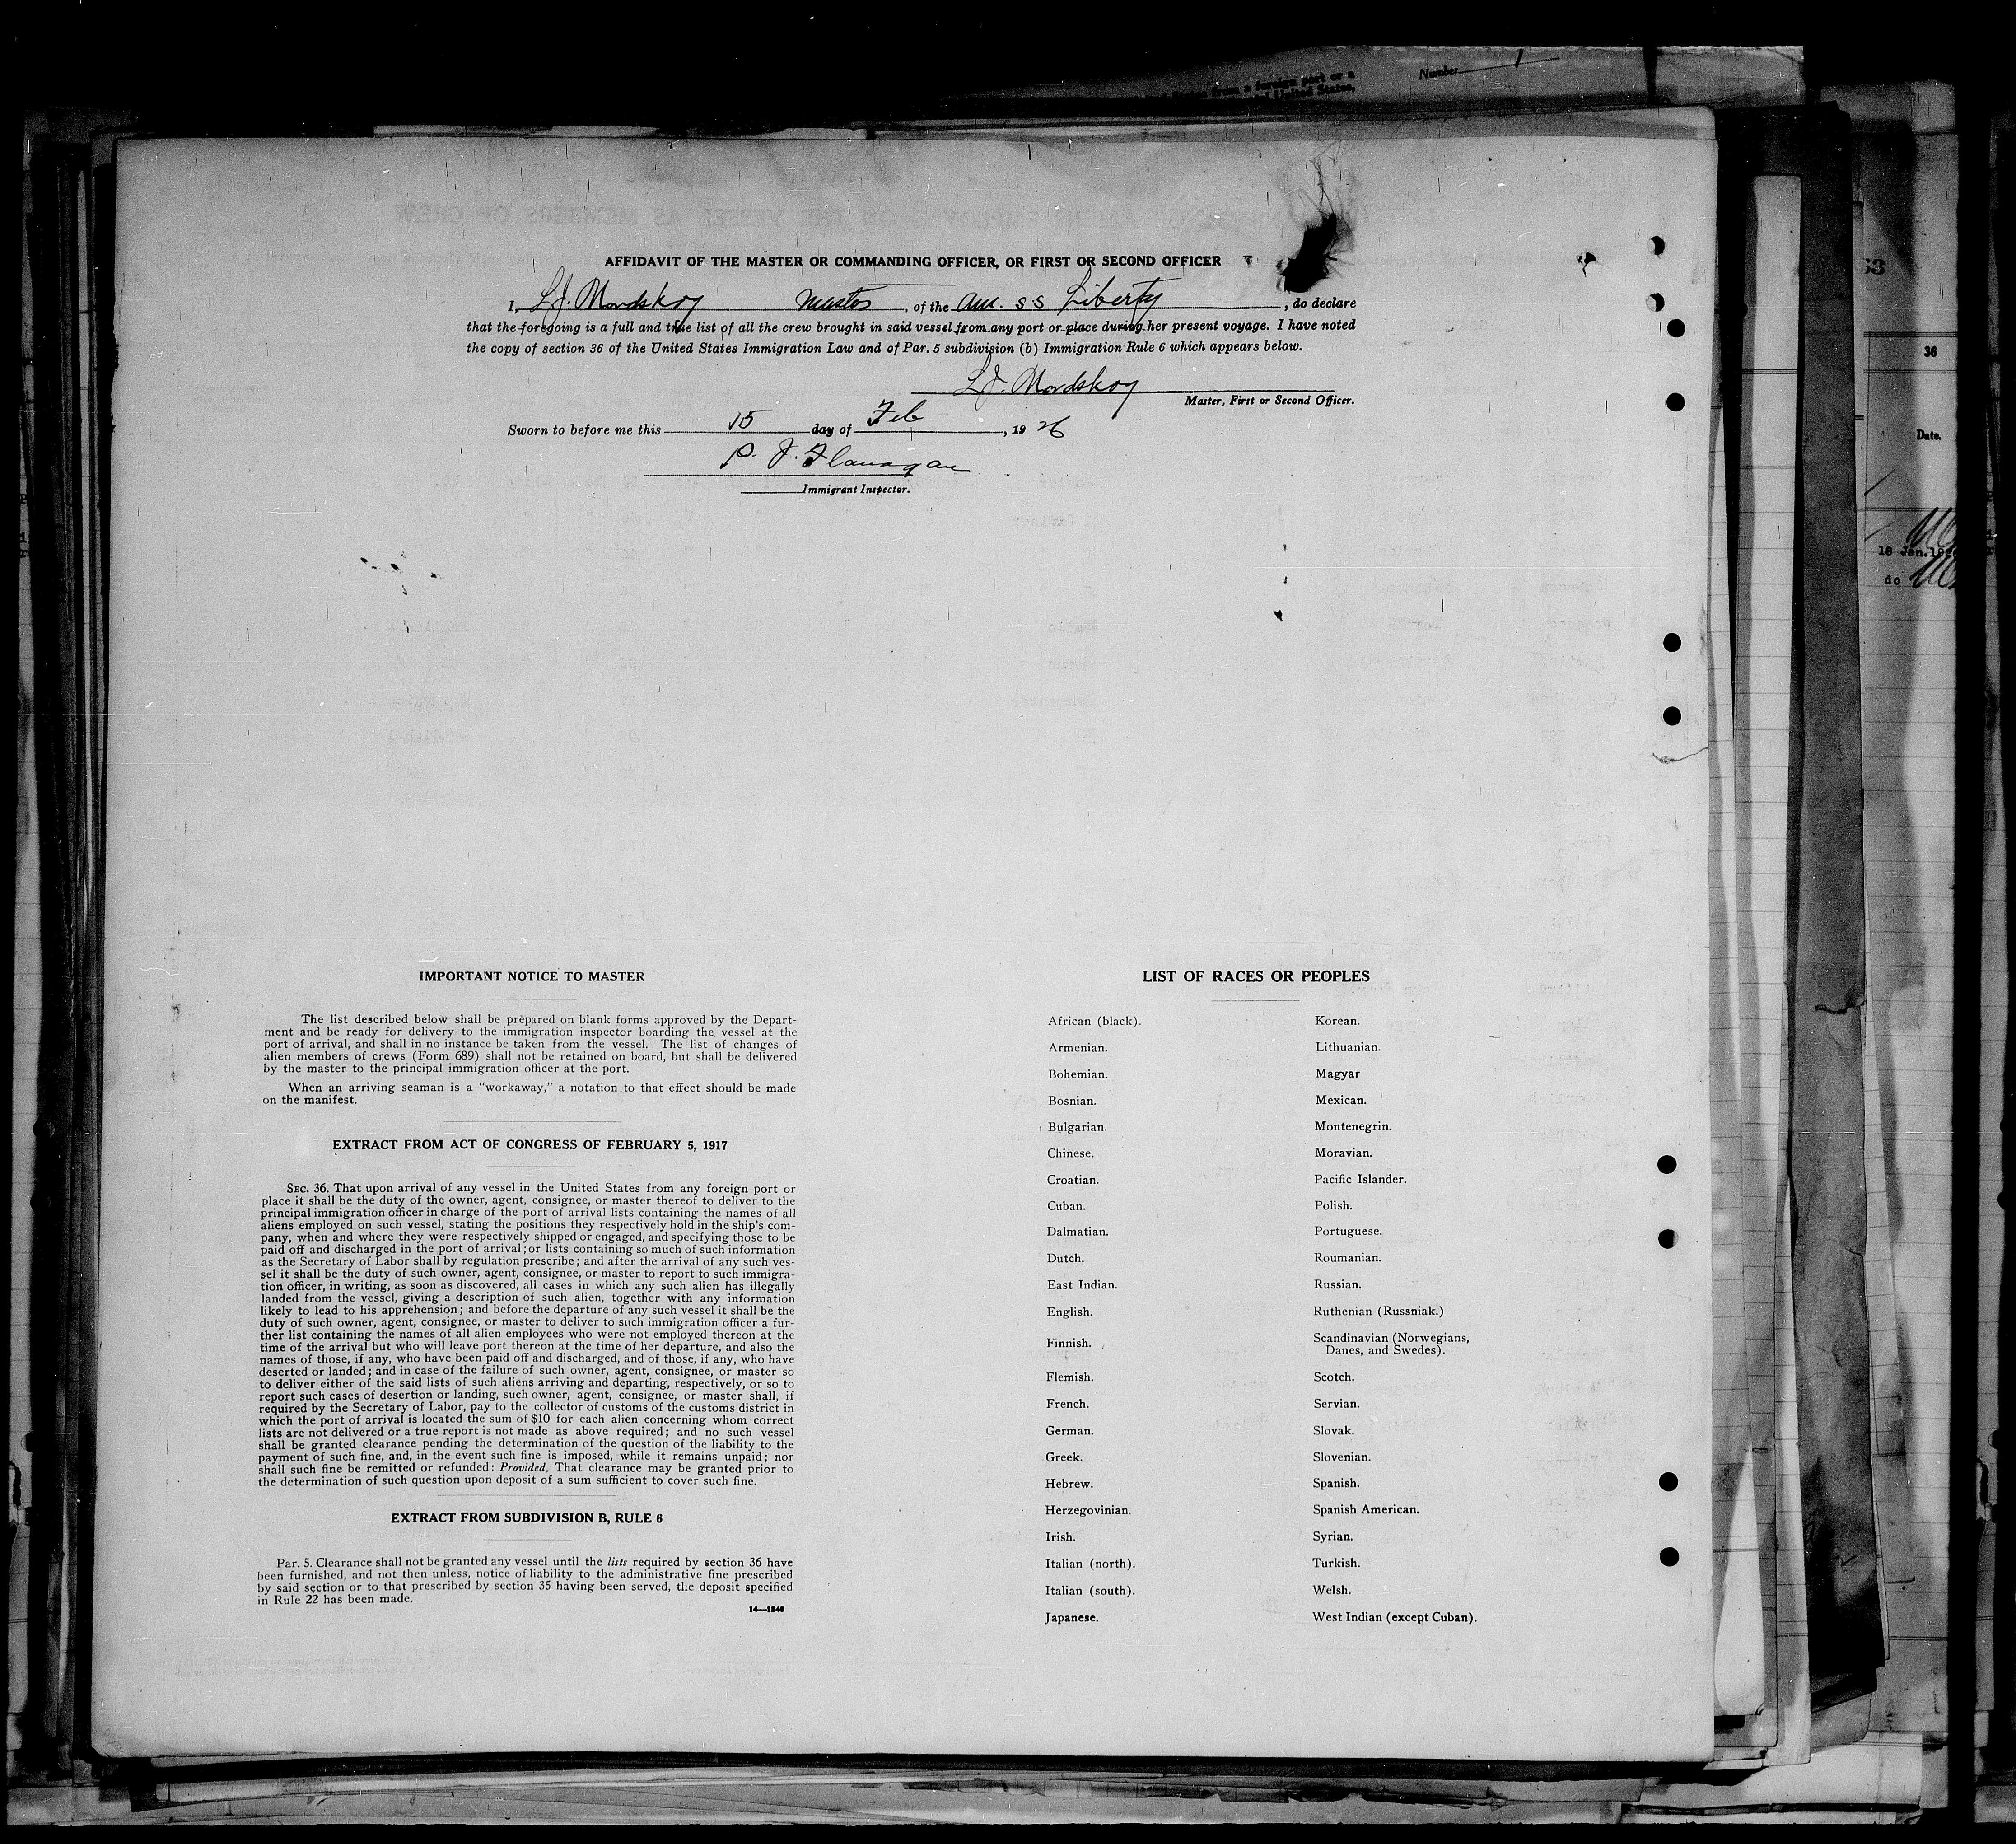 Number 1
from a foreign port or a
United States,
AFFIDAVIT OF THE MASTER OR COMMANDING OFFICER, OR FIRST OR SECOND OFFICER
I, L.J. Nordskog master, of the Am. S.S Liberty, do declare
that the foregoing is a full and true list of all the crew brought in said vessel from any port or place during her present voyage. I have noted
the copy of section 36 of the United States Immigration Law and of Par. 5 subdivision (b) Immigration Rule 6 which appears below.
L.J. Nordskog
Master, First or Second Officer.
Sworn to before me this 15 day of Feb, 1926
P. J. Flanagan
Immigrant Inspector.
IMPORTANT NOTICE TO MASTER
The list described below shall be prepared on blank forms approved by the Depart-
ment and be ready for delivery to the immigration inspector boarding the vessel at the
port of arrival, and shall in no instance be taken from the vessel. The list of changes of
alien members of crews (Form 689) shall not be retained on board, but shall be delivered
by the master to the principal immigration officer at the port.
When an arriving seaman is a "workaway," a notation to that effect should be made
on the manifest.
EXTRACT FROM ACT OF CONGRESS OF FEBRUARY 5, 1917
SEC. 36. That upon arrival of any vessel in the United States from any foreign port or
place it shall be the duty of the owner, agent, consignee, or master thereof to deliver to the
principal immigration officer in charge of the port of arrival lists containing the names of all
aliens employed on such vessel, stating the positions they respectively hold in the ship's com-
pany, when and where they were respectively shipped or engaged, and specifying those to be
paid off and discharged in the port of arrival; or lists containing so much of such information
as the Secretary of Labor shall by regulation prescribe; and after the arrival of any such ves-
sel it shall be the duty of such owner, agent, consignee, or master to report to such immigra-
tion officer, in writing, as soon as discovered, all cases in which any such alien has illegally
landed from the vessel, giving a description of such alien, together with any information
likely to lead to his apprehension; and before the departure of any such vessel it shall be the
duty of such owner, agent, consignee, or master to deliver to such immigration officer a fur-
ther list containing the names of all alien employees who were not employed thereon at the
time of the arrival but who will leave port thereon at the time of her departure, and also the
names of those, if any, who have been paid off and discharged, and of those, if any, who have
deserted or landed; and in case of the failure of such owner, agent, consignee, or master so
to deliver either of the said lists of such aliens arriving and departing, respectively, or so to
report such cases of desertion or landing, such owner, agent, consignee, or master shall, if
required by the Secretary of Labor, pay to the collector of customs of the customs district in
which the port of arrival is located the sum of $10 for each alien concerning whom correct
lists are not delivered or a true report is not made as above required; and no such vessel
shall be granted clearance pending the determination of the question of the liability to the
payment of such fine, and, in the event such fine is imposed, while it remains unpaid; nor
shall such fine be remitted or refunded: Provided, That clearance may be granted prior to
the determination of such question upon deposit of a sum sufficient to cover such fine.
EXTRACT FROM SUBDIVISION B, RULE 6
Par. 5. Clearance shall not be granted any vessel until the lists required by section 36 have
been furnished, and not then unless, notice of liability to the administrative fine prescribed
by said section or to that prescribed by section 35 having been served, the deposit specified
in Rule 22 has been made.
14—1240
LIST OF RACES OR PEOPLES
African (black).
Armenian.
Bohemian.
Bosnian.
Bulgarian.
Chinese.
Croatian.
Cuban.
Dalmatian.
Dutch.
East Indian.
English.
Finnish.
Flemish.
French.
German.
Greek.
Hebrew.
Herzegovinian.
Irish.
Italian (north).
Italian (south).
Japanese.
Korean.
Lithuanian.
Magyar
Mexican.
Montenegrin.
Moravian.
Pacific Islander.
Polish.
Portuguese.
Roumanian.
Russian.
Ruthenian (Russniak.)
Scandinavian (Norwegians,
Danes, and Swedes).
Scotch.
Servian.
Slovak.
Slovenian.
Spanish.
Spanish American.
Syrian.
Turkish.
Welsh.
West Indian (except Cuban).
36
Date.
18 Jan.
do